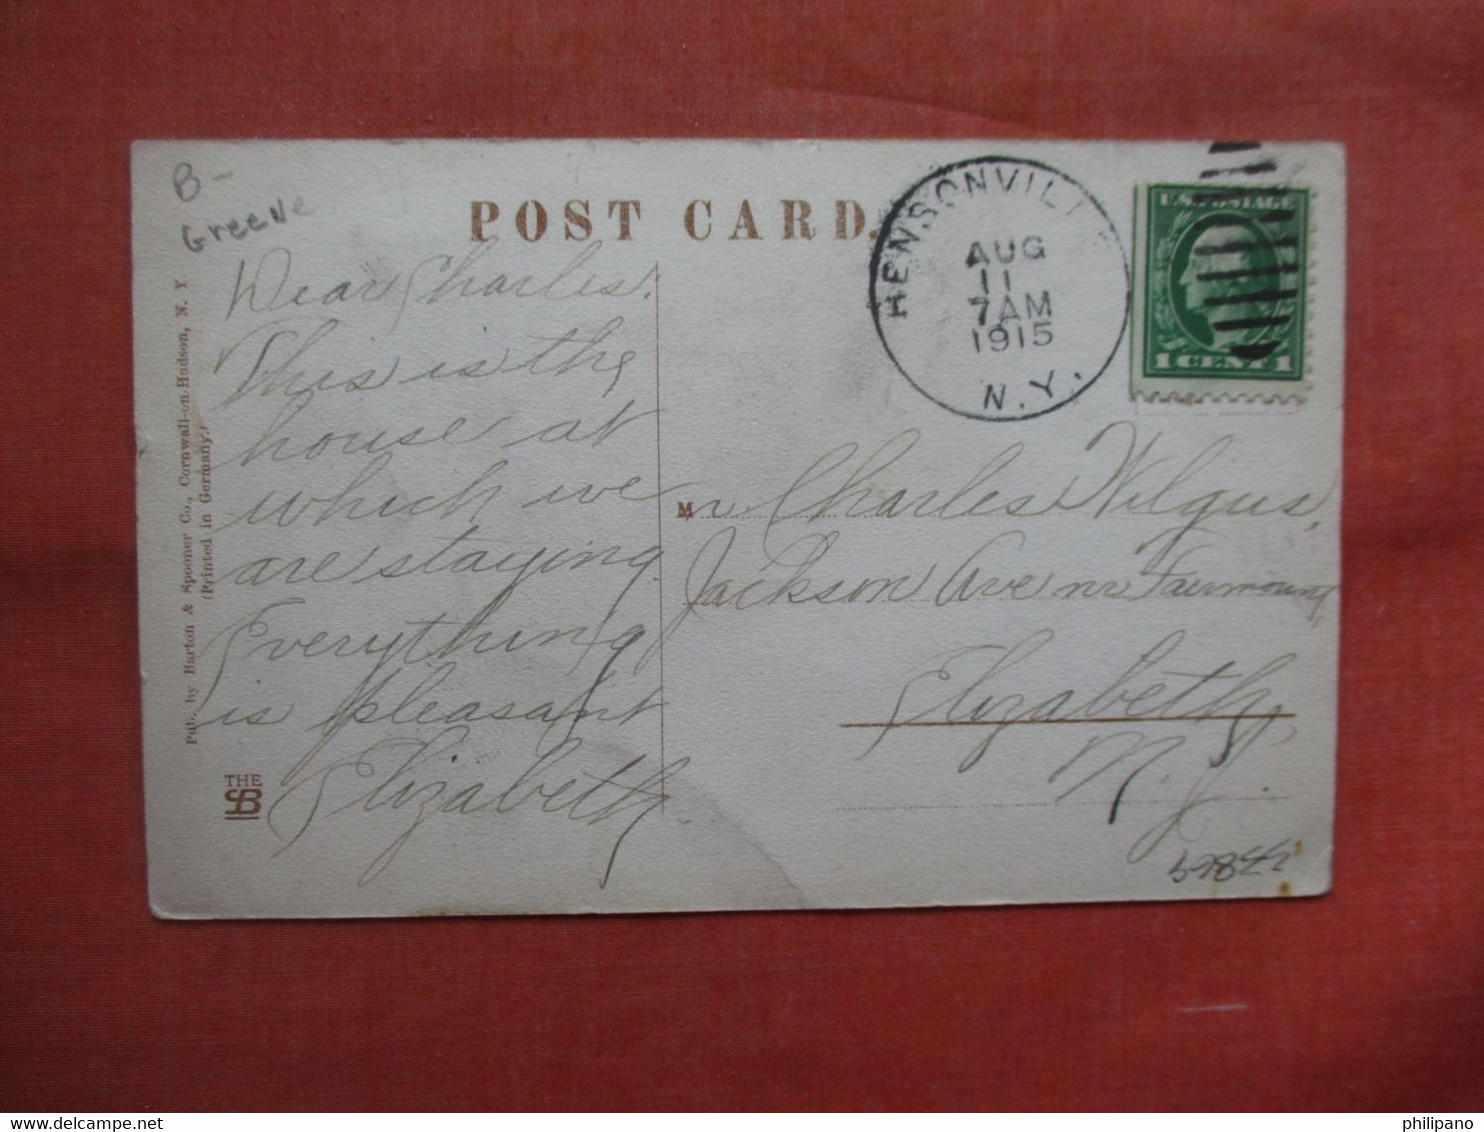 B-
Greene
POST CARD.
HENSONVILLE
AUG
11
7AM
1915
N.Y.
U.S. POSTAGE
1 CENT 1
Dear Charles.
This is the
house at
which we
are staying.
Everything
is pleasant
Elizabeth
Mr Charles Wilgus,
Jackson Ave nr Fairmount
Elizabeth,
N. J.
Pub. by Barton & Spooner Co., Cornwall-on-Hudson, N. Y.
(Printed in Germany.)
THE
SB
delcampe.net
philipano